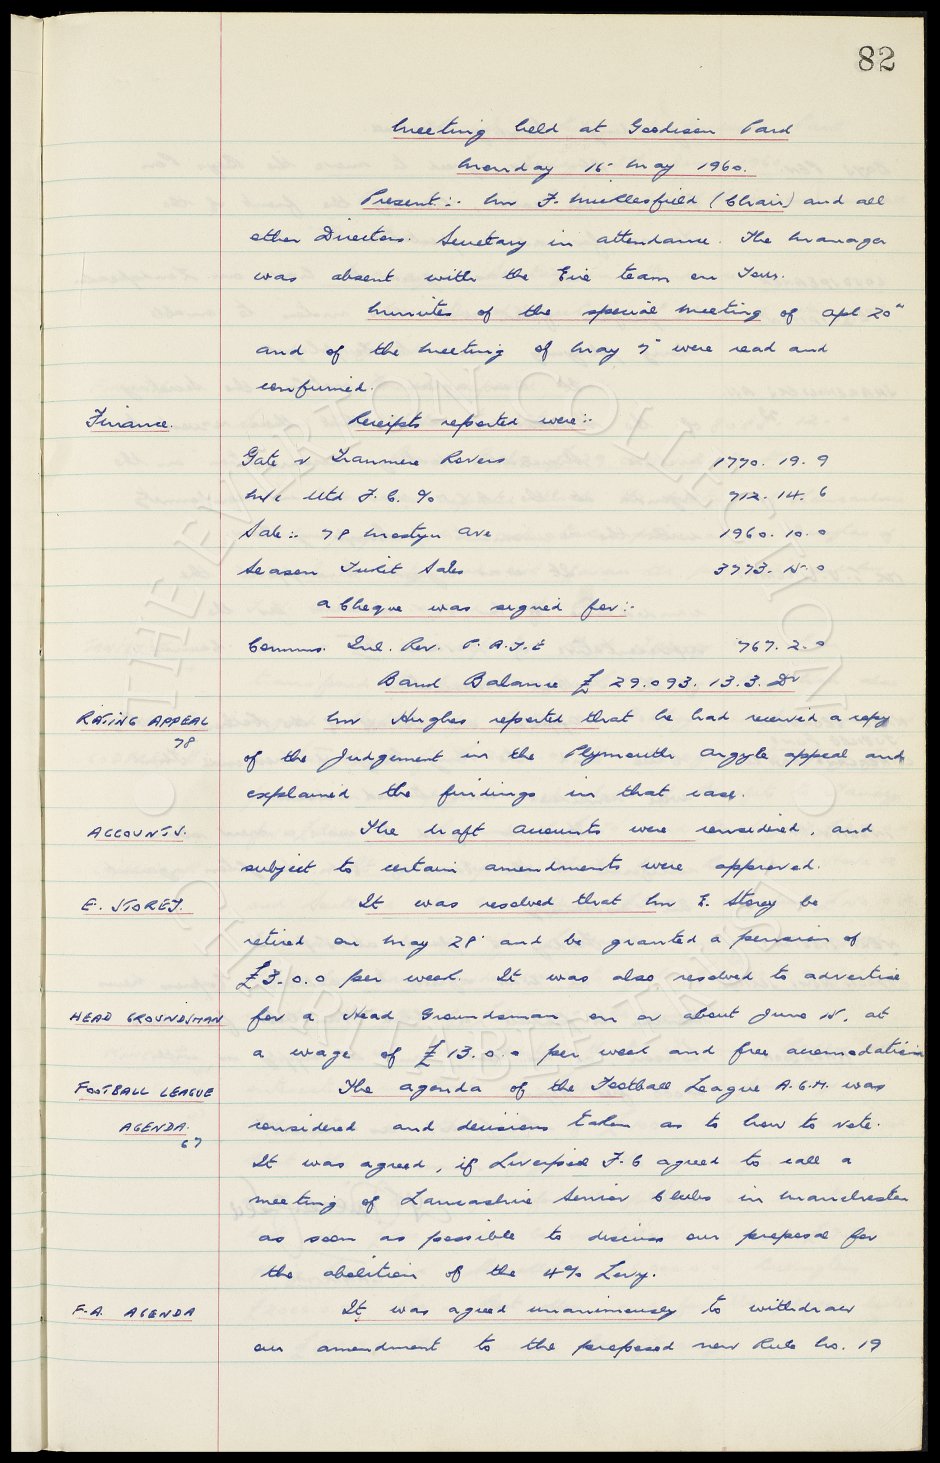 82
Meeting held at Goodison Park
Monday 16" May 1960.
Present:- Mr F. Micklesfield (Chair) and all
other Directors. Secretary in attendance. The Manager
was absent with the Eire team on Tour.
Minutes of the special meeting of Apl 20"
and of the meeting of May 9" were read and
confirmed.
Finance. Receipts reported were:-
Gate v Tranmere Rovers 1770. 19. 9
M/c Utd F.C. % 712. 14. 6
Sale:- 78 Mostyn Ave 1960. 10. 0
Season Ticket Sales 3773. 15. 0
A Cheque was signed for:-
Comms. Inl. Rev. P.A.Y.E 767. 2. 0
Bank Balance £ 29.093. 13. 3. Dr
RATING APPEAL Mr Hughes reported that he had received a copy
78
of the Judgement in the Plymouth Argyle appeal and
explained the findings in that case.
ACCOUNTS. The draft accounts were considered, and
subject to certain amendments were approved.
E. STOREY. It was resolved that Mr E. Storey be
retired on May 28" and be granted a pension of
£3. 0. 0 per week. It was also resolved to advertise
HEAD GROUNDSMAN for a Head Groundsman on or about June 15, at
a wage of £13. 0. 0 per week and free accomodation
FOOTBALL LEAGUE The agenda of the Football League A.G.M. was
AGENDA. considered and decisions taken as to how to vote.
67
It was agreed, if Liverpool F.C agreed to call a
meeting of Lancashire Senior Clubs in Manchester
as soon as possible to discuss our proposal for
the abolition of the 4% Levy.
F.A. AGENDA It was agreed unanimously to withdraw
our amendment to the proposed new Rule No. 19
THE EVERTON COLLECTION
CHARITABLE TRUST